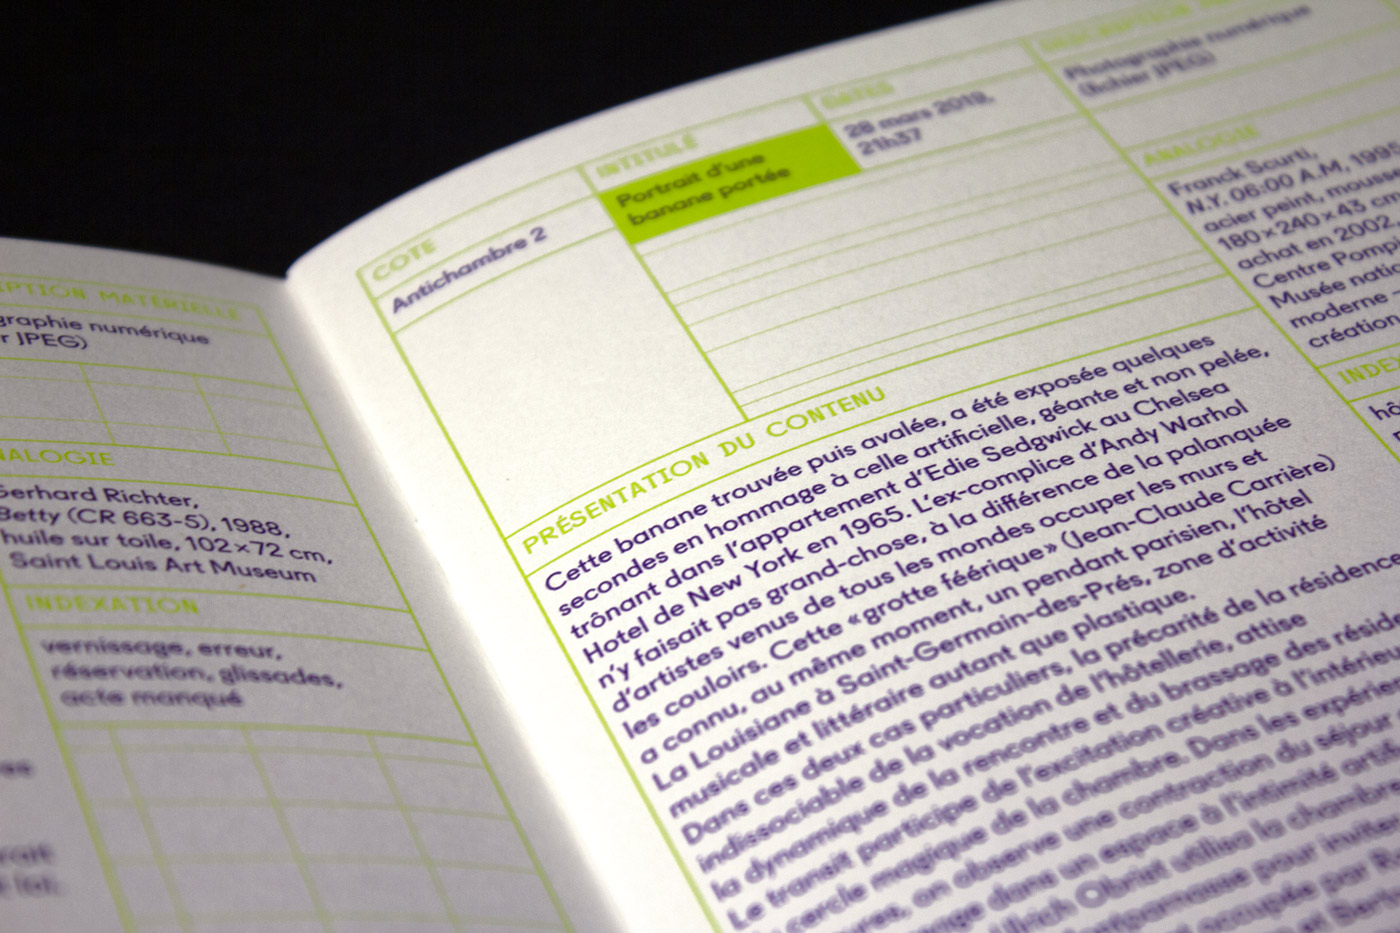 PTION MATÉRIELLE
graphie numérique
r JPEG)
NALOGIE
Gerhard Richter,
Betty (CR 663-5), 1988,
huile sur toile, 102×72 cm,
Saint Louis Art Museum
INDEXATION
vernissage, erreur,
réservation, glissades,
acte manqué
COTE
Antichambre 2
INTITULÉ
Portrait d'une
banane portée
DATES
28 mars 2019,
21h37
Photographie numérique
(fichier JPEG)
ANALOGIE
Franck Scurti,
N.Y. 06:00 A.M, 1995
acier peint, mousse
180×240×43 cm
achat en 2002
Centre Pomp
Musée nati
moderne
création
INDEX
hô
PRÉSENTATION DU CONTENU
Cette banane trouvée puis avalée, a été exposée quelques
secondes en hommage à celle artificielle, géante et non pelée,
trônant dans l'appartement d'Edie Sedgwick au Chelsea
Hotel de New York en 1965. L'ex-complice d'Andy Warhol
n'y faisait pas grand-chose, à la différence de la palanquée
d'artistes venus de tous les mondes occuper les murs et
les couloirs. Cette « grotte féérique » (Jean-Claude Carrière)
a connu, au même moment, un pendant parisien, l'hôtel
La Louisiane à Saint-Germain-des-Prés, zone d'activité
musicale et littéraire autant que plastique.
Dans ces deux cas particuliers, la précarité de la résidence
indissociable de la vocation de l'hôtellerie, attise
la dynamique de la rencontre et du brassage des résid
Le transit participe de l'excitation créative à l'intérieu
cercle magique de la chambre. Dans les expérie
res, on observe une contraction du séjour
ange dans un espace à l'intimité artifi
Ulrich Obrist utilisa la chambre
ontparnasse pour inviter
occupée par